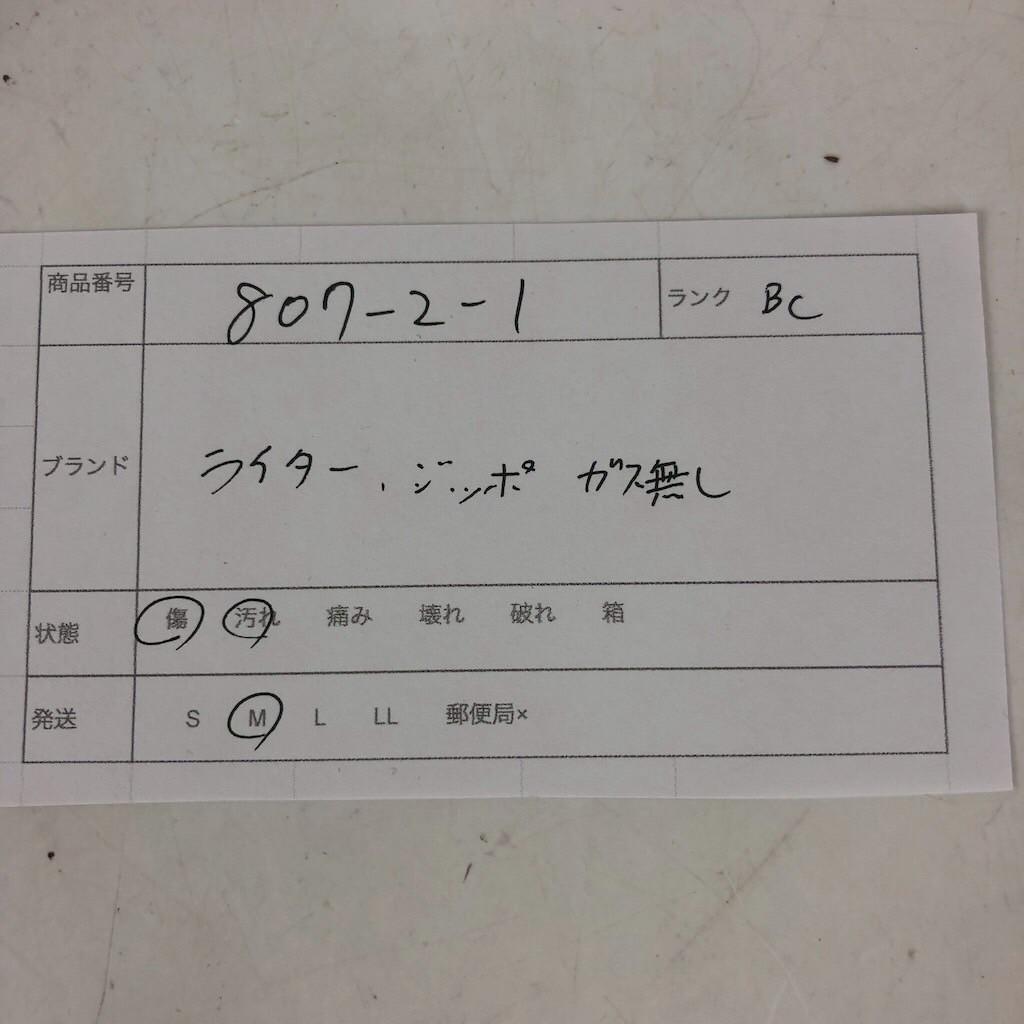 商品番号 807-2-1 ランク BC
ブランド ライター、ジッポ ガス無し
状態 傷 汚れ 痛み 壊れ 破れ 箱
発送 S M L LL 郵便局×